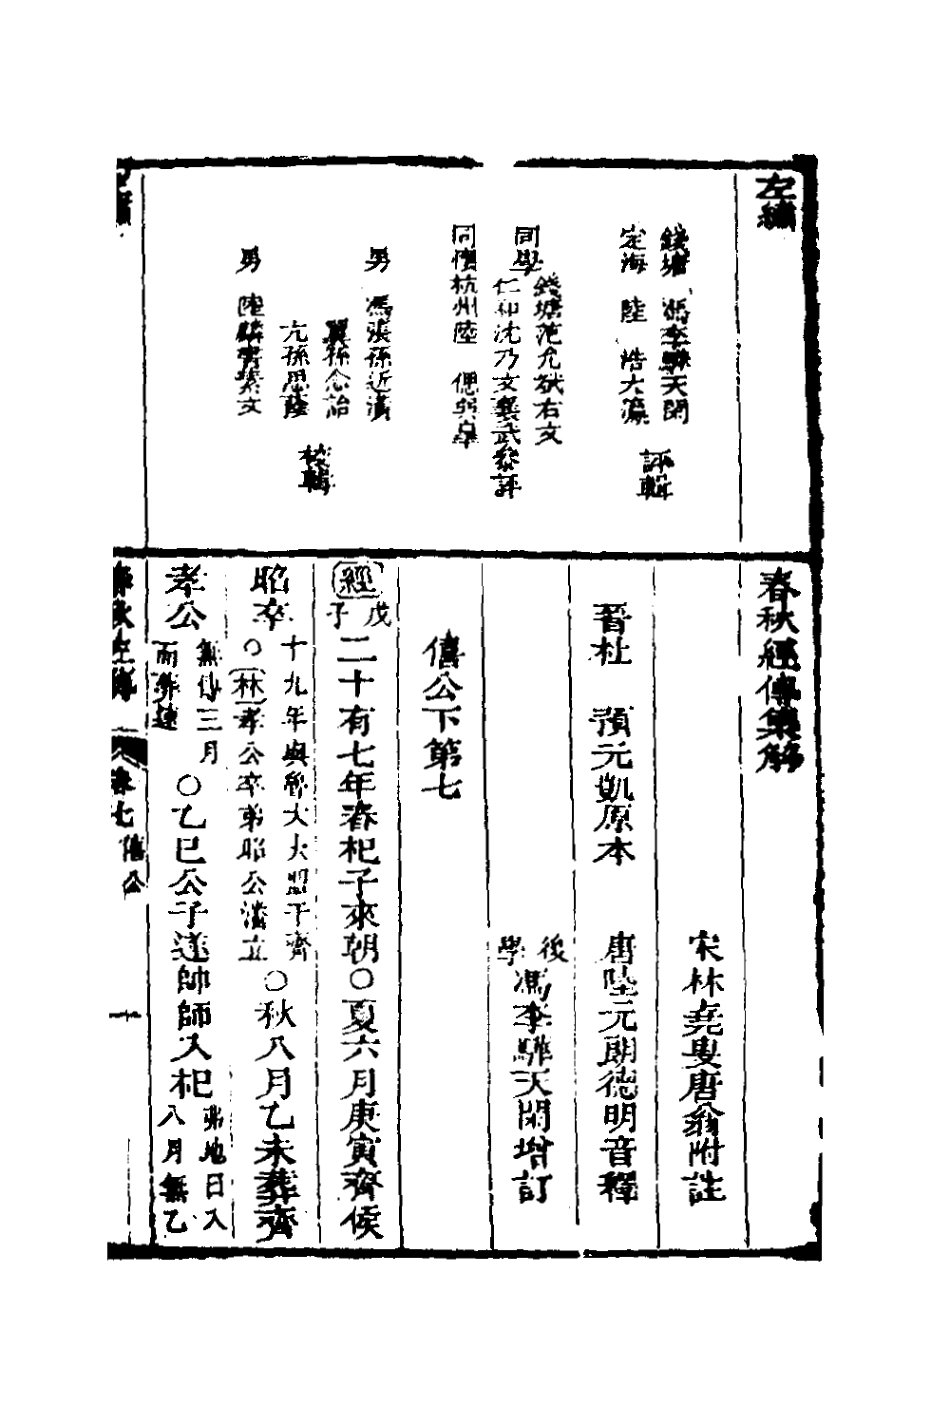 左繡
錢塘 馮李驊天閑
定海 陸 浩大瀛
評輯
同學
錢塘范允斌右文
仁和沈乃文襄武參評
同懷杭州陸 偲與皋
男 馮張孫近潢
翼孫念詒
亢孫思蔭
男 陸麟書素文
校輯
春秋經傳集解
宋林堯叟唐翁附註
晉杜 預元凱原本 唐陸元朗德明音釋
後學馮李驊天閑增訂
僖公下第七
經戊子二十有七年春杞子來朝○夏六月庚寅齊侯
昭卒十九年與魯大夫盟于齊○林孝公卒弟昭公潘立○秋八月乙未葬齊
孝公無傳三月而葬速○乙巳公子遂帥師入杞弗地曰入八月無乙
春秋左傳 卷七 僖公 一